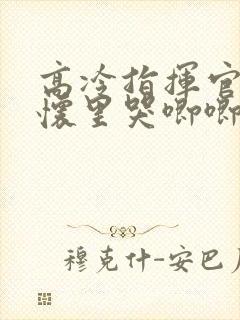 高冷指揮官
懷里哭唧唧
穆克什-安巴